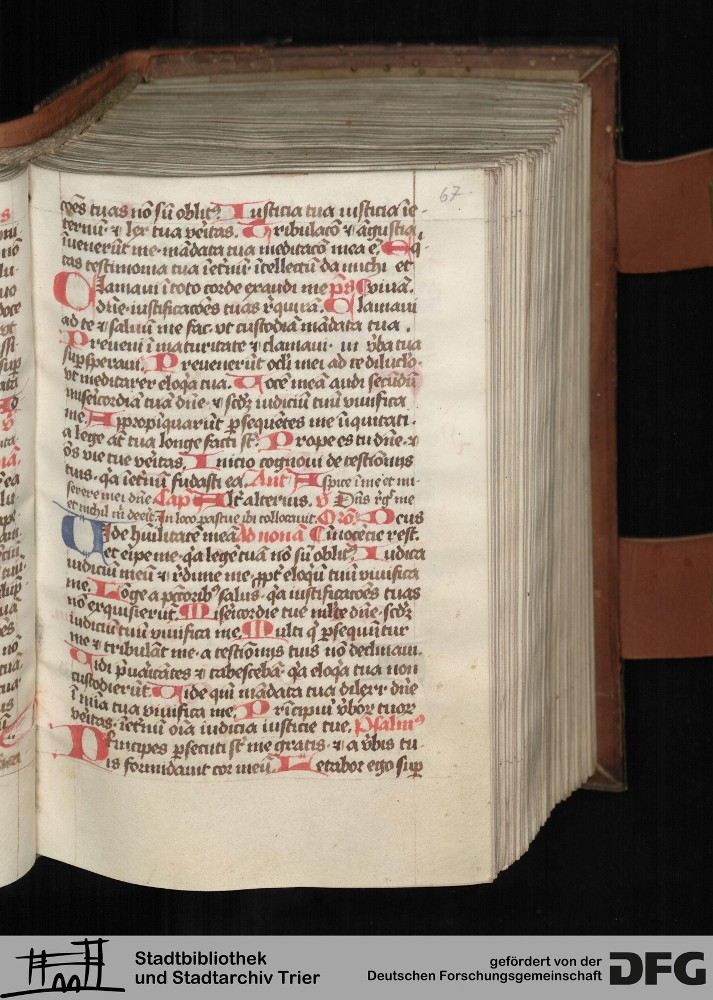 67
c̄oēs tuas nō sū oblit9 Iusticia tua iusticia ī e-
ternū ⁊ lex tua veritas. Tribulacō ⁊ āgustia
īvenerūt me mādata tua meditacō mea ē. Eq̄-
tas testimonia tua ī etnū ītellectū da michi et
Clamavi ī toto corde exaudi me ps vivā.
dn̄e iustificacōes tuas req̄rā. Clamavi
ad te ⁊ salvū me fac vt custodiā mādata tua.
Preveni ī maturitate ⁊ clamavi in v̄ba tua
sup̄speravi. Prevenerūt ocl̄i mei ad te diluclo
vt meditarer eloq̄a tua. Vocē meā audi secūdū
misericordiā tuā dn̄e ⁊ scdȝ iudiciū tuū vivifica
me. Appropiquarūt p̄sequētes me īiquitati
a lege at̄ tua longe facti st̄. Prope es tu dn̄e ⁊
ōs vie tue veritas. Inicio cognovi de testimonijs
tuis q̄a ī etnū fūdasti ea. Ant̄ Aspice ī me et mi-
serere mei dn̄e Cap̄ Alt̄ alterius. v̄ Dn̄s rḡt me
et nichil m̄ deerit In loco pascue ibi collocavit. Orō Deus
Vide hūilitatē meā Ad nonā Cū īnocētie rest.
et eripe me q̄a legē tuā nō sū oblit9 Iudica
iudiciū meū ⁊ r̄dime me ppt̄ eloq̄ū tuū vivifica
me. Lōge a pcc̄oribȝ salus q̄a iustificacōes tuas
nō exquisierūt. Misericordie tue multe dn̄e scdȝ
iudiciū tuū vivifica me. Multi q̄ p̄sequūtur
me ⁊ tribulāt me a testimonijs tuis nō declinavi.
Vidi p̄varicātes ⁊ tabescebā q̄a eloq̄a tua non
custodierūt. Vide qm̄ mādata tua dilexi dn̄e
ī mīa tua vivifica me. Prīcipiū v̄bor tuor
veritas ī etnū oīa iudicia iusticie tue. Psalm9
Principes p̄secuti st̄ me gratis ⁊ a v̄bis tu-
is formidavit cor meū. Letabor ego sup̄
Stadtbibliothek
und Stadtarchiv Trier
gefördert von der
Deutschen Forschungsgemeinschaft
DFG